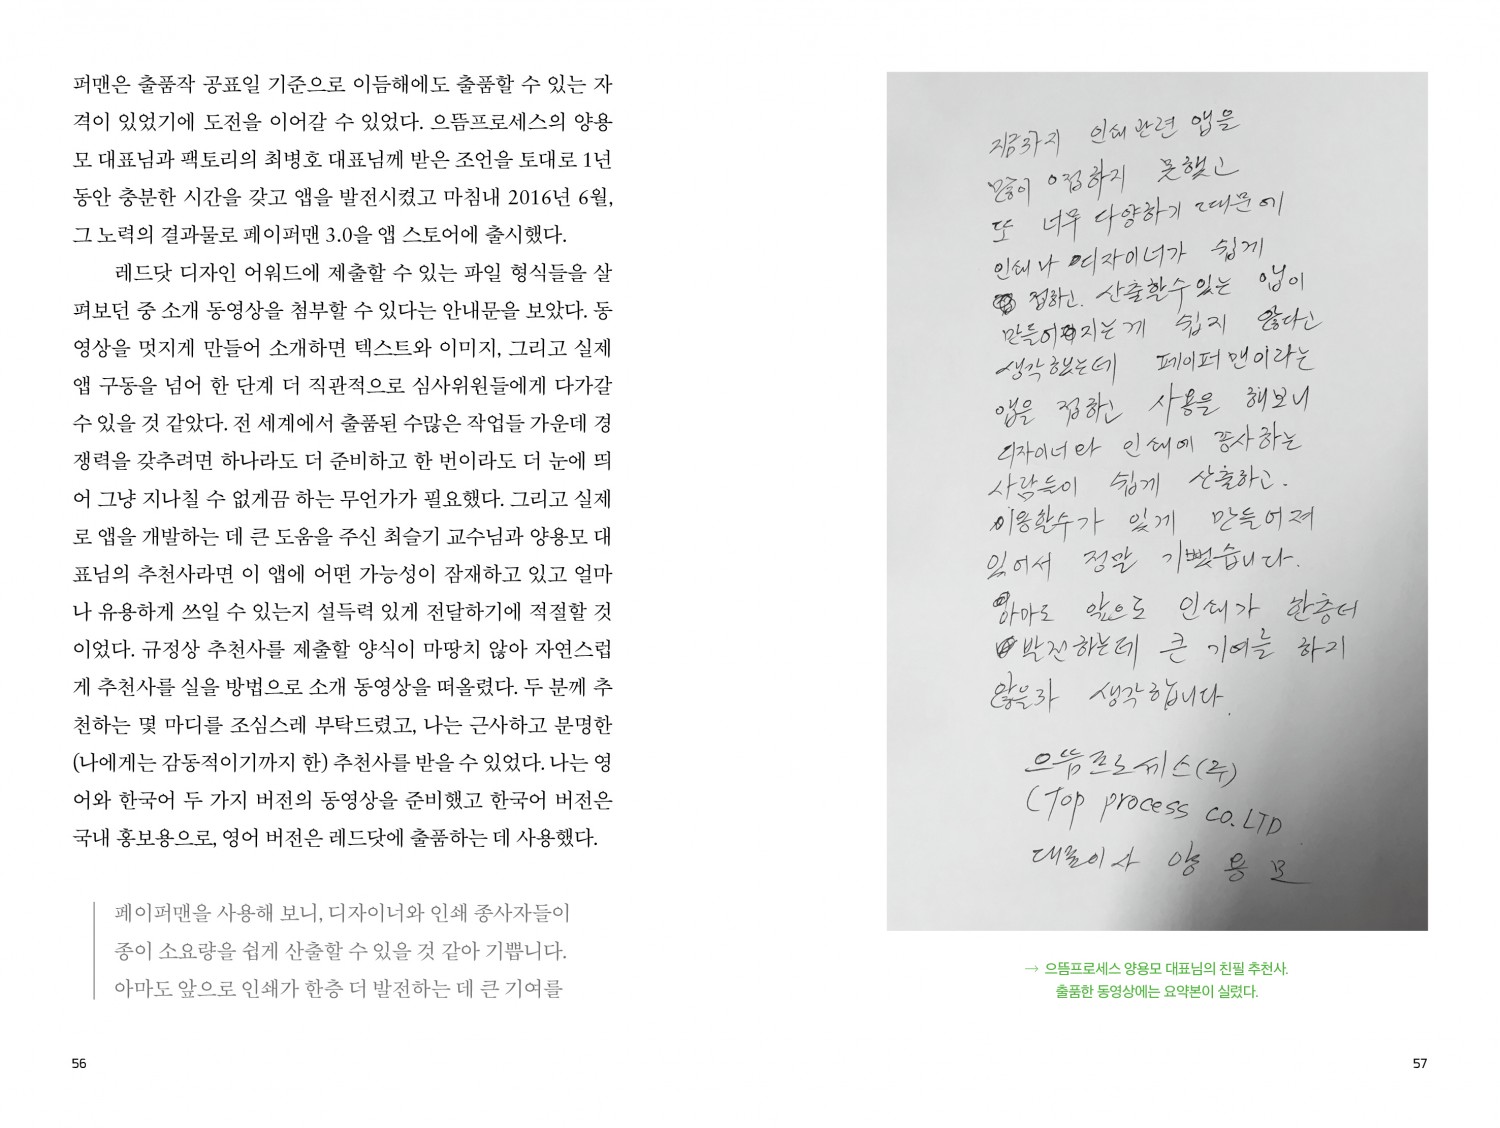 퍼맨은 출품작 공표일 기준으로 이듬해에도 출품할 수 있는 자
격이 있었기에 도전을 이어갈 수 있었다. 으뜸프로세스의 양용
모 대표님과 팩토리의 최병호 대표님께 받은 조언을 토대로 1년
동안 충분한 시간을 갖고 앱을 발전시켰고 마침내 2016년 6월,
그 노력의 결과물로 페이퍼맨 3.0을 앱 스토어에 출시했다.
레드닷 디자인 어워드에 제출할 수 있는 파일 형식들을 살
펴보던 중 소개 동영상을 첨부할 수 있다는 안내문을 보았다. 동
영상을 멋지게 만들어 소개하면 텍스트와 이미지, 그리고 실제
앱 구동을 넘어 한 단계 더 직관적으로 심사위원들에게 다가갈
수 있을 것 같았다. 전 세계에서 출품된 수많은 작업들 가운데 경
쟁력을 갖추려면 하나라도 더 준비하고 한 번이라도 더 눈에 띄
어 그냥 지나칠 수 없게끔 하는 무언가가 필요했다. 그리고 실제
로 앱을 개발하는 데 큰 도움을 주신 최슬기 교수님과 양용모 대
표님의 추천사라면 이 앱에 어떤 가능성이 잠재하고 있고 얼마
나 유용하게 쓰일 수 있는지 설득력 있게 전달하기에 적절할 것
이었다. 규정상 추천사를 제출할 양식이 마땅치 않아 자연스럽
게 추천사를 실을 방법으로 소개 동영상을 떠올렸다. 두 분께 추
천하는 몇 마디를 조심스레 부탁드렸고, 나는 근사하고 분명한
(나에게는 감동적이기까지 한) 추천사를 받을 수 있었다. 나는 영
어와 한국어 두 가지 버전의 동영상을 준비했고 한국어 버전은
국내 홍보용으로, 영어 버전은 레드닷에 출품하는 데 사용했다.
페이퍼맨을 사용해 보니, 디자이너와 인쇄 종사자들이
종이 소요량을 쉽게 산출할 수 있을 것 같아 기쁩니다.
아마도 앞으로 인쇄가 한층 더 발전하는 데 큰 기여를
56
지금까지 인쇄관련 앱을
많이 접하지 못했고
또 너무 다양하기 때문에
인쇄나 디자이너가 쉽게
접하고. 산출할수있는 앱이
만들어지는게 쉽지 않다고
생각했는데 페이퍼맨이라는
앱을 접하고 사용을 해보니
디자이너와 인쇄에 종사하는
사람들이 쉽게 산출하고.
이용할수가 있게 만들어져
있어서 정말 기뻤습니다.
아마도 앞으로 인쇄가 한층더
발전하는데 큰 기여를 하지
않을까 생각합니다.
으뜸프로세스(주)
(Top process co.LTD
대표이사 양용모
→ 으뜸프로세스 양용모 대표님의 친필 추천사.
출품한 동영상에는 요약본이 실렸다.
57